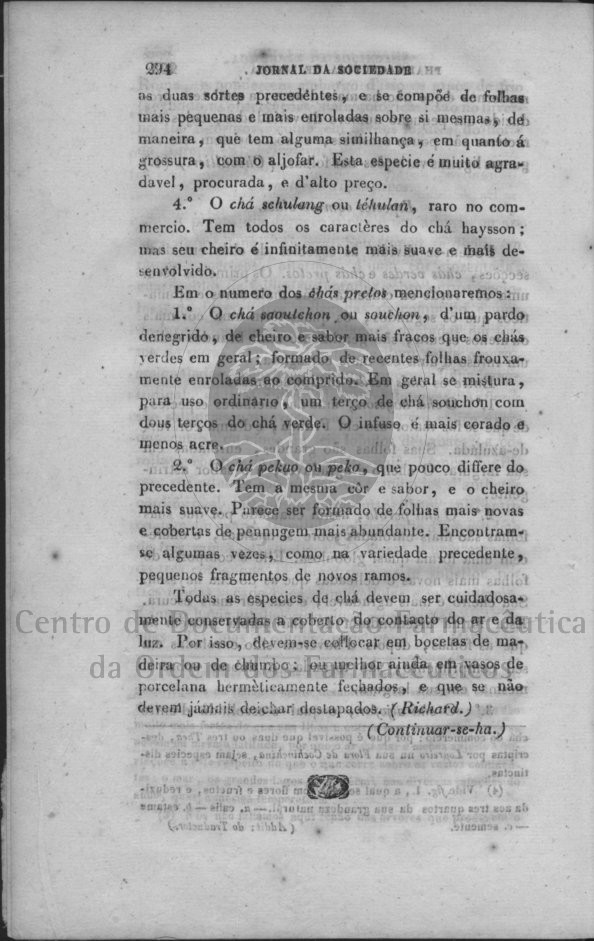 294 JORNAL DA SOCIEDADE
as duas sórtes precedentes, e se compõe de folhas
mais pequenas e mais enroladas sobre si mesmas, de
maneira, que tem alguma similhança, em quanto á
grossura, com o aljofar. Esta especie é muito agra-
davel, procurada, e d'alto preço.
4.° O chá schulang ou téhulan, raro no com-
mercio. Tem todos os caractères do chá haysson;
mas seu cheiro é infinitamente mais suave e mais de-
senvolvido.
Em o numero dos chás pretos mencionaremos:
1.° O chá saoutchon ou souchon, d'um pardo
denegrido, de cheiro e sabor mais fracos que os chás
verdes em geral; formado de recentes folhas frouxa-
mente enroladas ao comprido. Em geral se mistura,
para uso ordinario, um terço de chá souchon com
dous terços do chá verde. O infuso é mais corado e
menos acre.
2.° O chá pekao ou peko, que pouco differe do
precedente. Tem a mesma côr e sabor, e o cheiro
mais suave. Parece ser formado de folhas mais novas
e cobertas de pennugem mais abundante. Encontram-
se algumas vezes, como na variedade precedente,
pequenos fragmentos de novos ramos.
Todas as especies de chá devem ser cuidadosa-
mente conservadas a coberto do contacto do ar e da
luz. Por isso, devem-se collocar em bocetas de ma-
deira ou de chumbo; ou melhor ainda em vasos de
porcelana hermèticamente fechados, e que se não
devem jámais deichar destapados. (Richard.)
(Continuar-se-ha.)
Centro de Documentação Farmacêutica
da Ordem dos Farmacêuticos